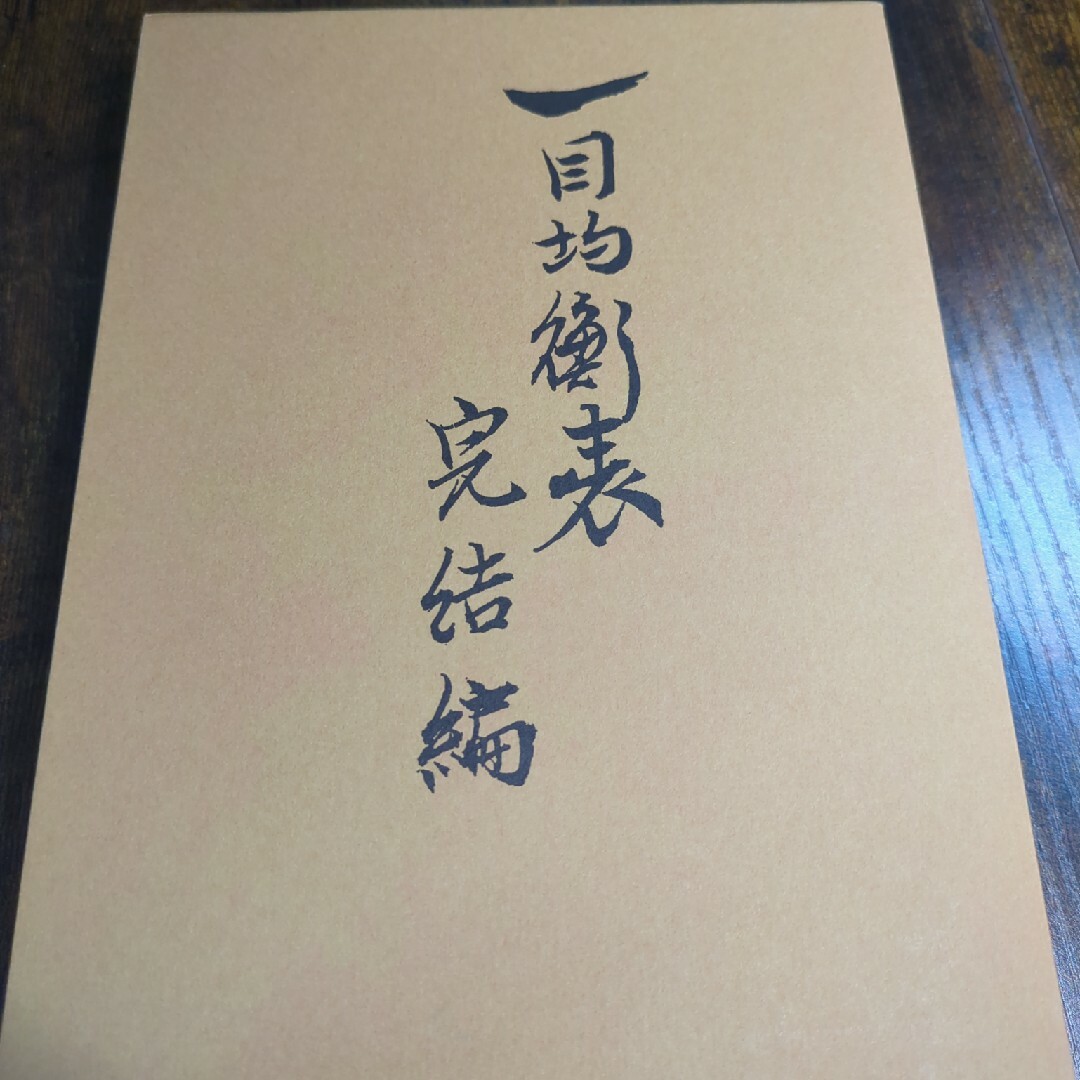 一目均衡表
完結編